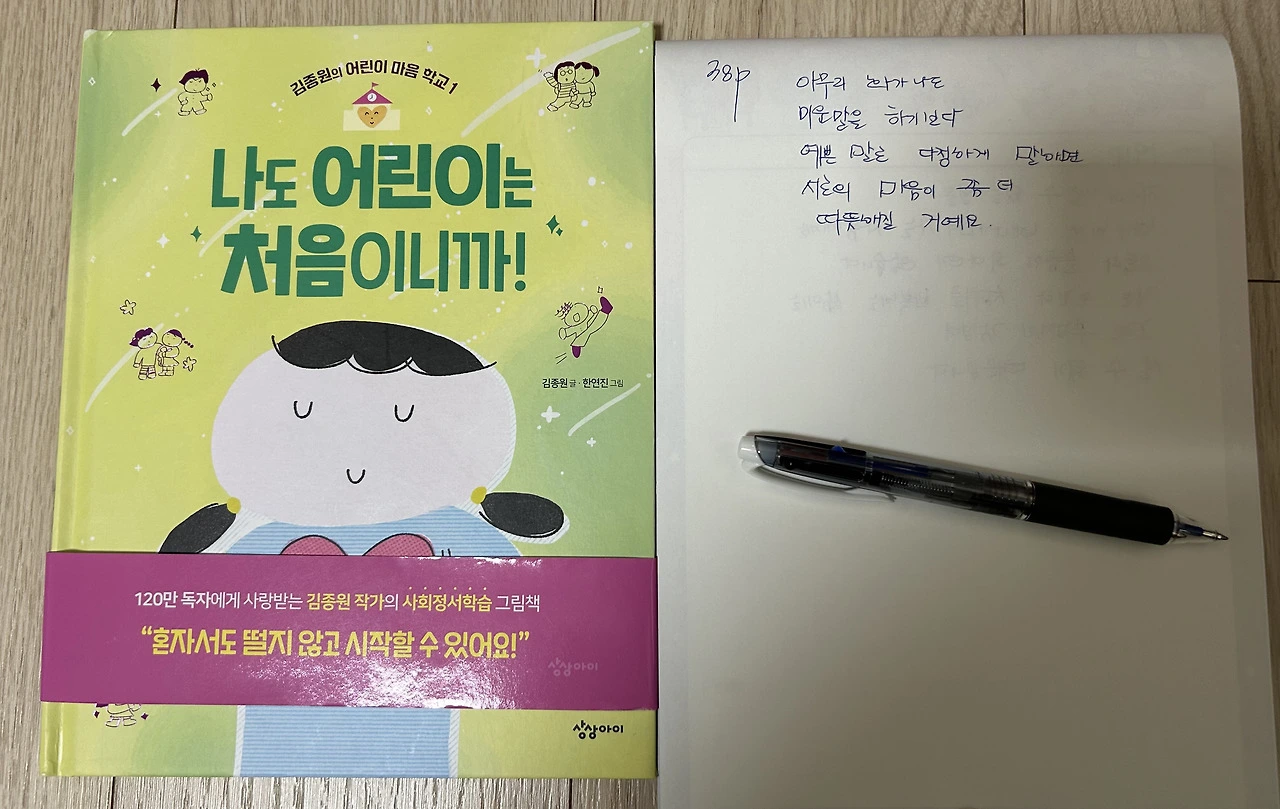 김종원의 어린이 마음 학교 1
나도 어린이는
처음이니까!
김종원 글 · 한연진 그림
120만 독자에게 사랑받는 김종원 작가의 사회정서학습 그림책
“혼자서도 떨지 않고 시작할 수 있어요!”
상상아이
상상아이
38p
아무리 화가 나도
미운말을 하기보다
예쁜 말로 다정하게 말하면
서로의 마음이 좀 더
따뜻해질 거예요.